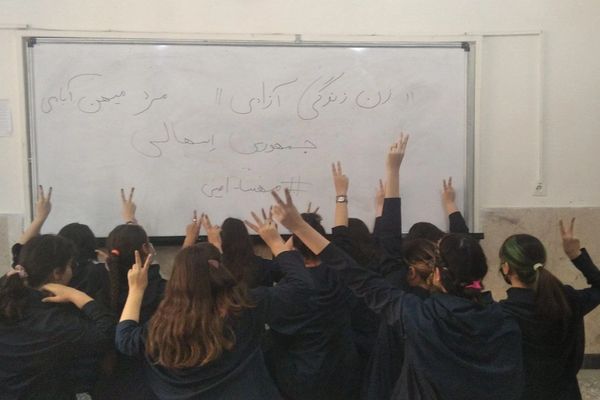 "زن زندگی آزادی" مرد میهن آبادی
جمهوری اسهالی
#مهسا_امینی